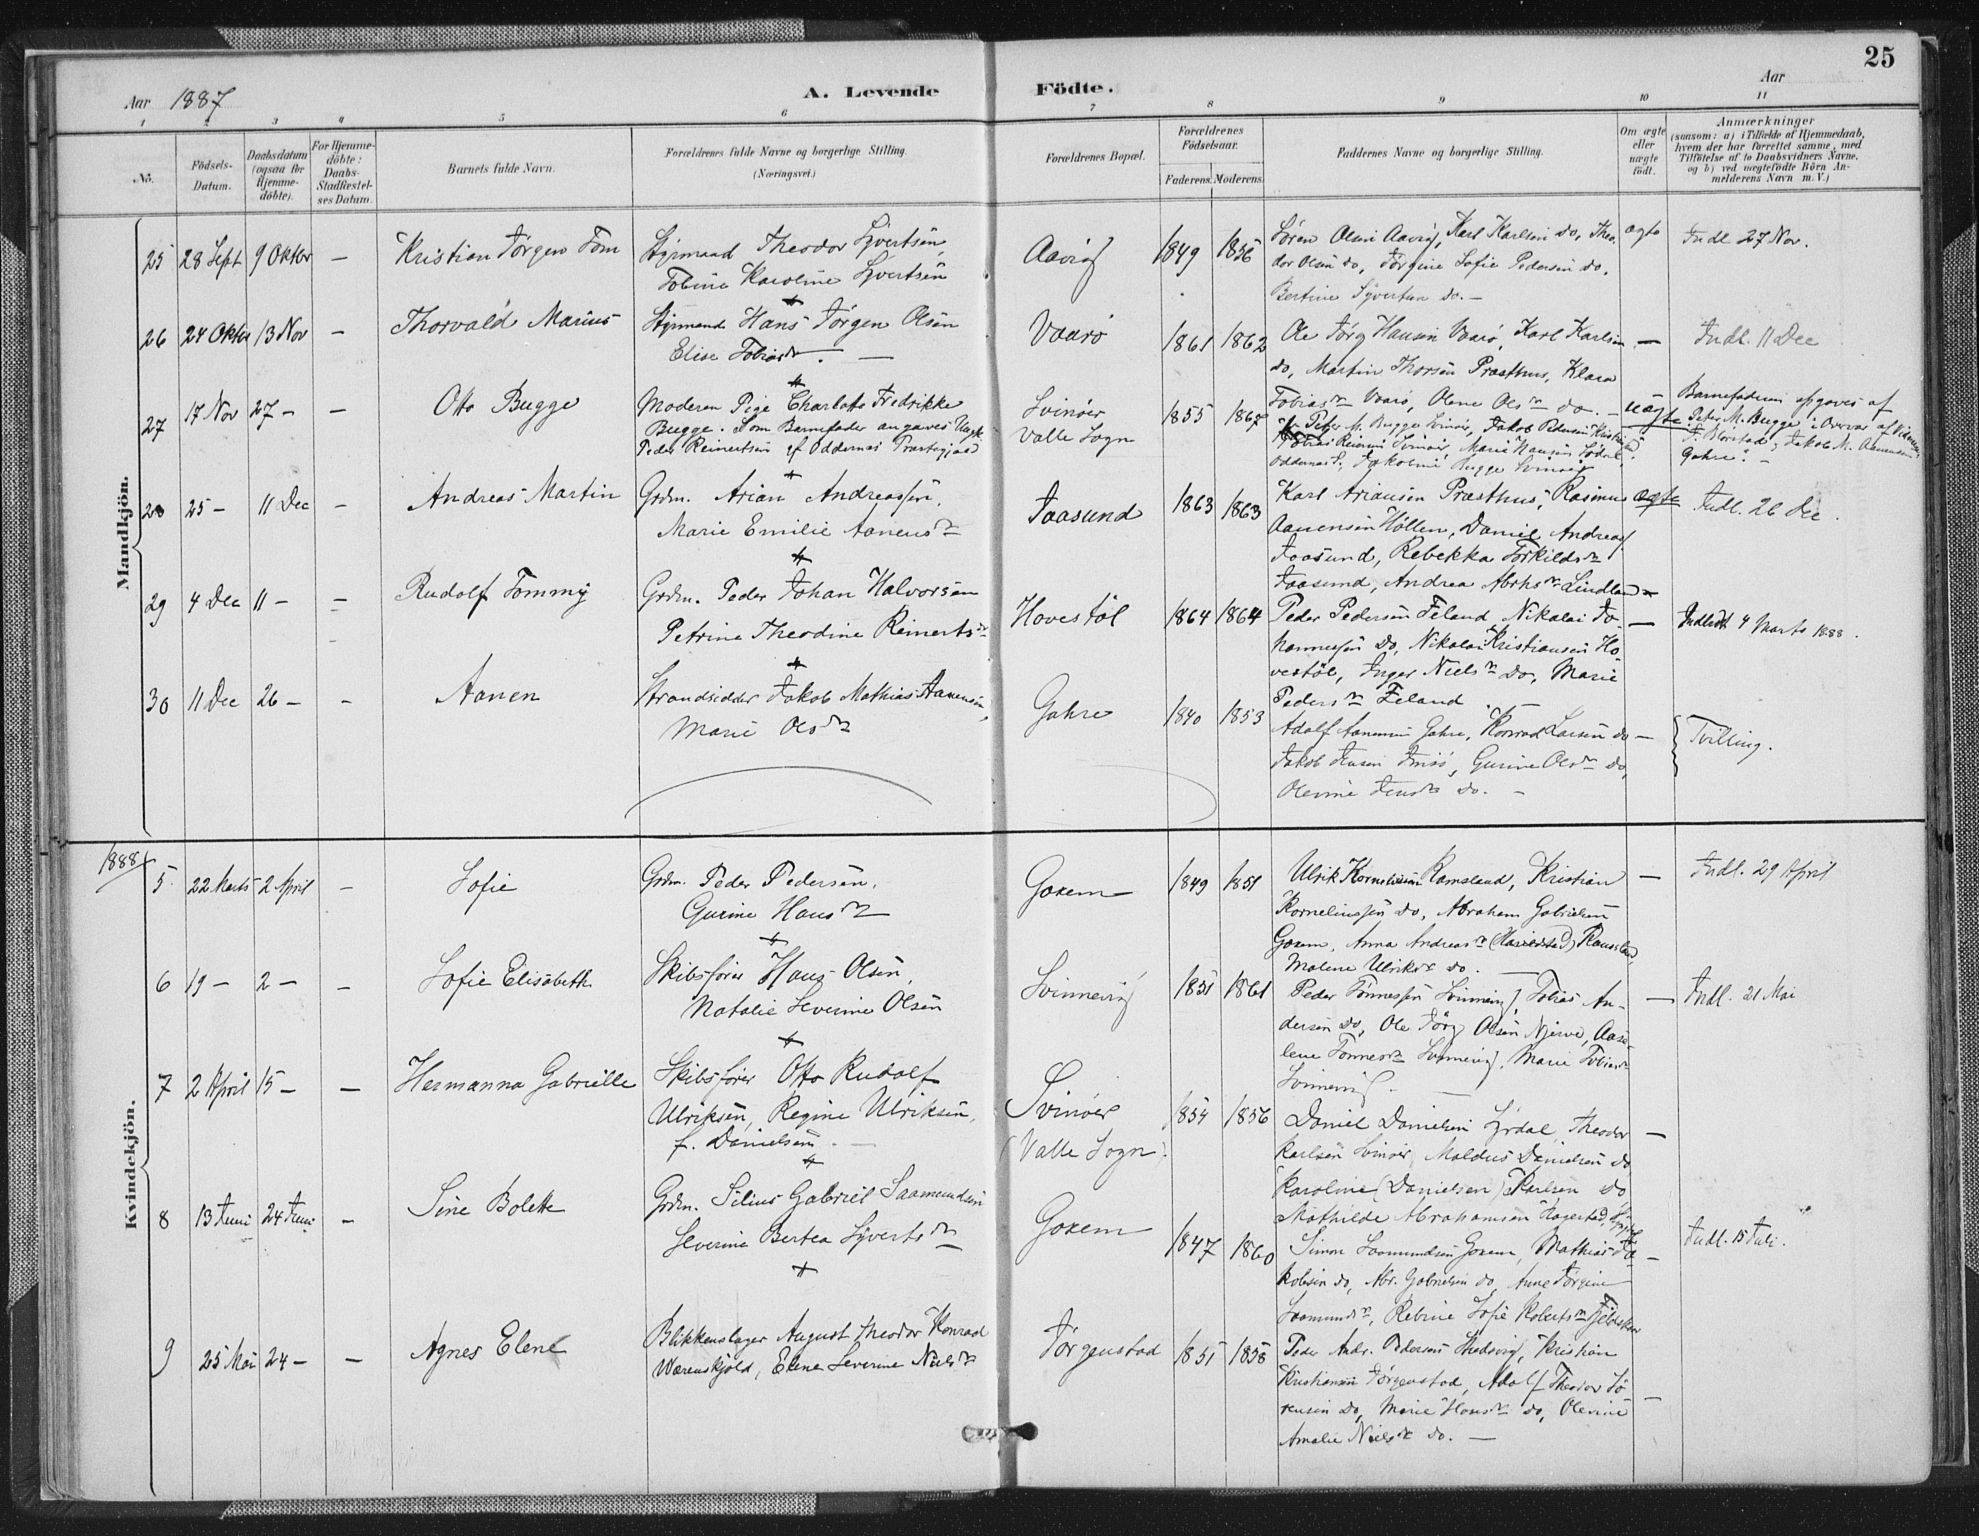 25
Aar 1887
A. Levende Födte.
Aar
1 2 3 4 5 6 7 8 9 10 11
No.
Födsels-
Datum.
Daabsdatum
(ogsaa for
Hjemme-
döbte).
For Hjemme-
döbte:
Daabs-
Stadfæstel-
ses Datum.
Barnets fulde Navn.
Forældrenes fulde Navne og borgerlige Stilling.
(Næringsvei.)
Forældrenes Bopæl.
Forældrenes
Födselsaar.
Faderens. Moderens.
Faddernes Navne og borgerlige Stilling.
Om ægte
eller
uægte
födt.
Anmærkninger
(saasom: a) i Tilfælde af Hjemmedaab,
hvem der har forrettet samme, med
Tilföielse af to Daabsvidners Navne.
og b) ved uægtefödte Börn An-
melderens Navn m. V.)
Mandkjön.
25 28 Sept 9 Oktbr – Kristian Jörgen Tom
Styrmand Theodor Syvertsen
Tobine Karoline Syvertsen
Aavig 1849 1856
Sören Olsen Aavig, Karl Karlsen do, Theo-
dor Olsen do, Jörgine Sofie Pedersen do,
Bertine Syvertsen do. –
ægte
Indl 27 Nov.
26 24 Oktbr 13 Nov – Thorvald Marius
Styrmand Hans Jörgen Olsen
Elise Tobiasdr. –
Vaarö 1861 1862
Ole Jörg Hansen Vaarö, Karl Karlsen
do, Martin Thorsen Præsthus, Klara
Tobiasdr Vaarö, Olene Olsdr do. –
–
Indl. 11 Dec
27 17 Nov 27 – – Otto Bugge
Moderen Pige Charlotte Fredrikke
Bugge. Som Barnefader angaves Ungk.
Peder Reinertsen af Oddernes Præstegjæld
Svinöer
Valle Sogn
1855 1867
Peter M. Bugge Svinör, Jakob Pedersen
Tobias Reiersen Svinör, Marie Hansen
Oddernes, Jakobine Bugge Svinör
uægte
Barnefaderen opgaves af
Peter M. Bugge i Overvær af Vidnerne
Jakob M. Aanensen
Gahre. –
28 25 – 11 Dec – Andreas Martin
Grdm. Arian Andreassen,
Marie Emilie Aanensdr
Jaasund 1863 1863
Karl Ariansen Præsthus, Rasmus
Aanensen Höllen, Daniel Andreass.
Jaasund, Rebekka Torkildsdr
Jaasund, Andrea Abrhsdr Lindland
ægte
Indl. 26 Dec.
29 4 Dec 11 – – Rudolf Tommy
Grdm. Peder Johan Halvorsen
Petrine Theodine Reinertsdr
Hovestöl 1864 1864
Peder Pedersen Feland, Nikolai Jo-
hannessen do, Nikolai Kristiansen Ho-
vestöl, Inger Nielsdr do, Marie
Pedersdr Feland. –
–
Indledt 4 Marts 1888.
30 11 Dec 26 – – Aanen
Strandsidder Jakob Mathias Aanensen,
Marie Olsdr
Gahre 1840 1853
Adolf Aanensen Gahre, Konrad Larsen do
Jakob Jensen, Gurine Olsdr do,
Olevine Jensdr do. –
–
Tvilling.
1888
Kvindekjön.
5 22 Marts 2 April – Sofie
Grdm. Peder Pedersen,
Gurine Hansdr
Goxem 1849 1851
Ulrik Korneliussen Ramsland, Kristian
Korneliussen do, Abraham Gabrielsen
Goxem, Anna Andreasdr (Harkestad) Ramsland,
Malene Ulriksdr do. –
–
Indl. 29 April
6 19 – 2 – – Sofie Elisabeth
Skibsförer Hans Olsen,
Natalie Severine Olsen
Svinnevig 1851 1861
Peder Tönnessen Svinnevig, Tobias An-
dersen do, Ole Jörg Olsen Njerve, Aase-
lene Tönnesdr Svinnevig, Marie Tobiasdr
Svinnevig. –
–
Indl. 21 Mai
7 2 April 15 – – Hermanna Gabrielle
Skibsförer Otto Rudolf
Ulriksen, Regine Ulriksen,
f. Danielsen. –
Svinöer
(Valle Sogn).
1854 1856
Daniel Danielsen Syrdal, Theodor
Karlsen Svinör, Maldus Danielsen do
Karoline (Danielsen) Karlsen do
Mathilde Abrahamsen Hagestad,
–
8 13 Juni 24 Juni – Sine Bolette
Grdm. Silius Gabriel Saamundsen
Severine Bertea Syvertsdr
Goxem 1847 1860
Simon Saamundsen Goxem, Mathias Ja-
kobsen do, Abr. Gabrielsen do, Anne Jörgine
Saamundsdr, Rebine Sofie Robertsdr Fjeldskaar
–
Indl. 15 Juli.
9 25 Mai 24 – – Agnes Elene
Blikkenslager August Theodor Konrad
Wærenskjold, Elene Severine Nielsdr
Jörgenstad 1851 1858
Peder Andr. Pedersen, Kristian
Kristiansen Jörgenstad, Adolf Theodor Sö-
rensen do, Marie Hansdr do, Olevine
Amalie Nielsdr do. –
–